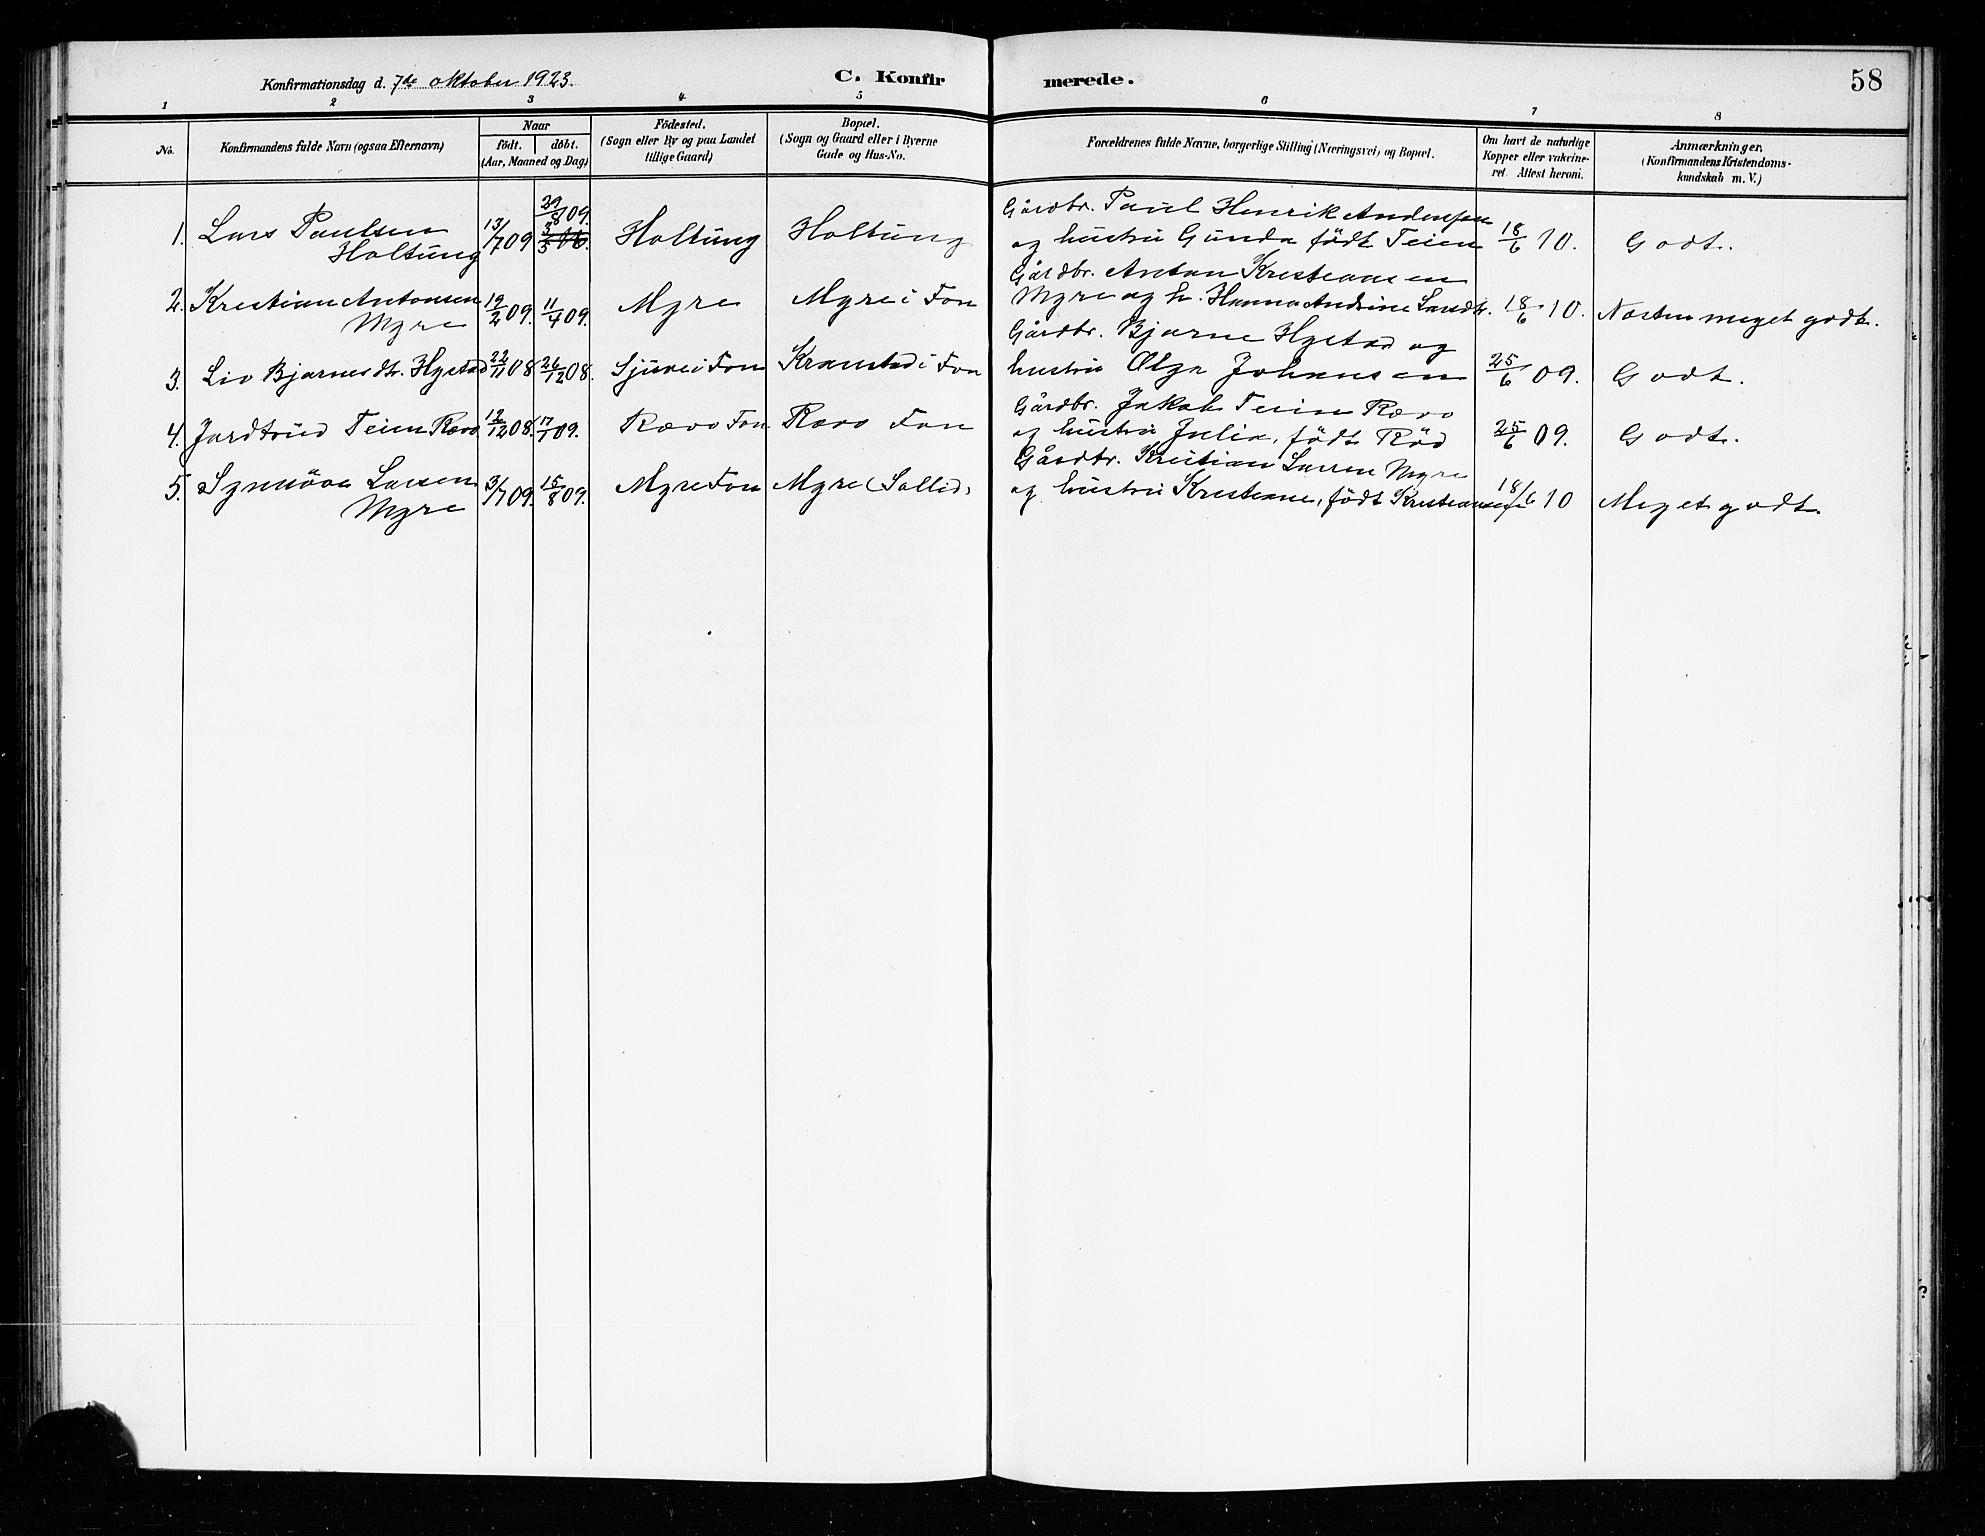 Konfirmationsdag d. 7de oktober 1923.
C. Konfirmerede.
58
1 2 3 4 5 6 7 8
No.
Konfirmandens fulde Navn (ogsaa Efternavn)
Naar
födt. döbt.
(Aar, Maaned og Dag)
Födested.
(Sogn eller By og paa Landet
tillige Gaard)
Bopæl.
(Sogn og Gaard eller i Byerne
Gade og Hus-No.
Forældrenes fulde Navne, borgerlige Stilling (Næringsvei) og Bopæl.
Om havt de naturlige
Kopper eller vakcine-
ret. Attest herom.
Anmærkninger.
(Konfirmandens Kristendoms-
kundskab m. V.)
1. Lars Paulsen
Holtung
13/7 09
29/8 09.
3/5 06.
Holtung
Holtung
Gårdbr. Paul Henrik Andersen
og hustru Gunda født Teien
18/6 10.
Godt.
2. Kristian Antonsen
Myre
19/2 09.
11/4 09.
Myre
Myre i Fon
Gårdbr. Anton Kristiansen
Myre og h. Hanna Andrine Larsdtr.
18/6 10.
Næsten meget godt.
3. Liv Bjarnesdtr. Hystad
22/11 08
26/12 08.
Sjuve i Fon
Kranstad i Fon
Gårdbr. Bjarne Hystad og
hustru Olga Johansen
25/6 09.
Godt.
4. Jardtrud Teien Rævo
12/12 08.
17/1 09.
Rævo Fon.
Rævo Fon
Gårdbr. Jakob Teien Rævo
og hustru Julia, født Rød
25/6 09.
Godt.
5. Synnöve Larsen
Myre
3/7 09.
15/8 09.
Myre Fon
Myre (Sollid)
Gårdbr. Kristian Larsen Myre
og hustru Kristiane, født Kristiansen
18/6 10
Meget godt.